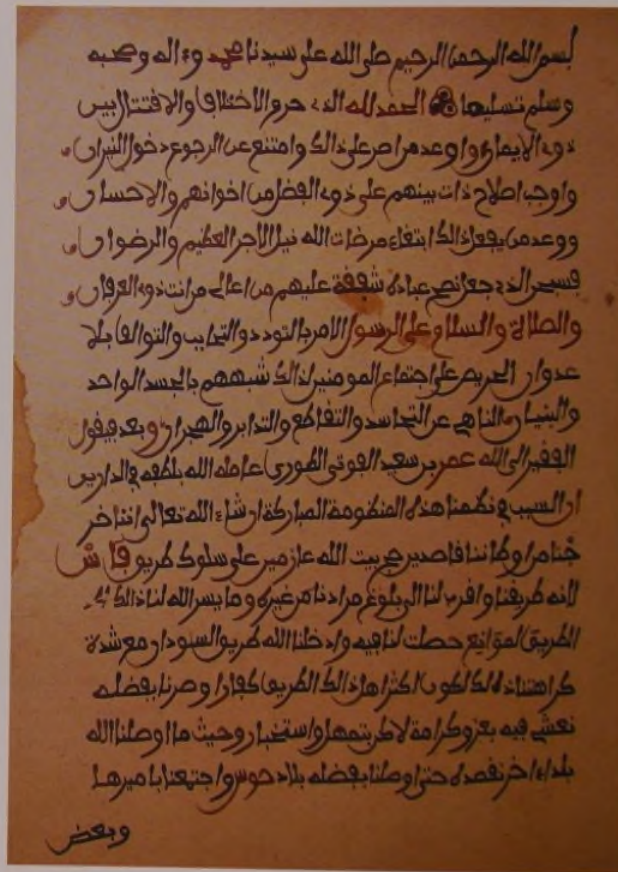 بسم الله الرحمن الرحيم صلى الله على سيدنا محمد وءاله وصحبه
وسلم تسليما الحمد لله الذى حرم الاختلاف والافتتال بين
ذوى الايمان واوعد من اصر على ذالك وامتنع عن الرجوع دخول النيران
واوجب اصلاح ذات بينهم على ذوى الفضل من اخوانهم والاحسان
ووعد من يفعل ذالك ابتغاء مرضات الله نيل الاجر العظيم والرضوان
فسبحن الذى جعل نصح عباده شفقة عليهم من اعالى مراتب ذوى العرفان
والصلاة والسلام على الرسول الامر بالتودد والتحابب والتوالف بلا
عدوان الحريص على اجتماع المومنين لذالك شبههم بالجسد الواحد
والبنيان الناهى عن التحاسد والتقاطع والتدابر والهجران وبعد فيقول
الفقير الى الله عمر بن سعيد الفوتى الطورى عامله الله بلطفه فى الدارين
ان السبب فى نظمنا هذه المنظومة المباركة ان شاء الله تعالى اننا خر
جنا مرا وكاننا قاصدين حج بيت الله عازمين على سلوك طريق فاس
لانه طريقنا واقرب لنا الى بلوغ مرادنا من غيره وما يسر الله لنا ذالك
الطريق لموانع حصلت لنا فيه وادخلنا الله طريق السودان مع شدة
كراهتنا ذالك لكون اكثر اهل ذالك الطريق كفارا وصرنا بفضله
نمشى فيه بعز وكرامة لاكن بتمهل واستخبار وحيث ما اوصلنا الله
بلدا ءاخر نقصده حتى اوصلنا بفضله بلاد حوس واجتمعنا باميرها
وبعض